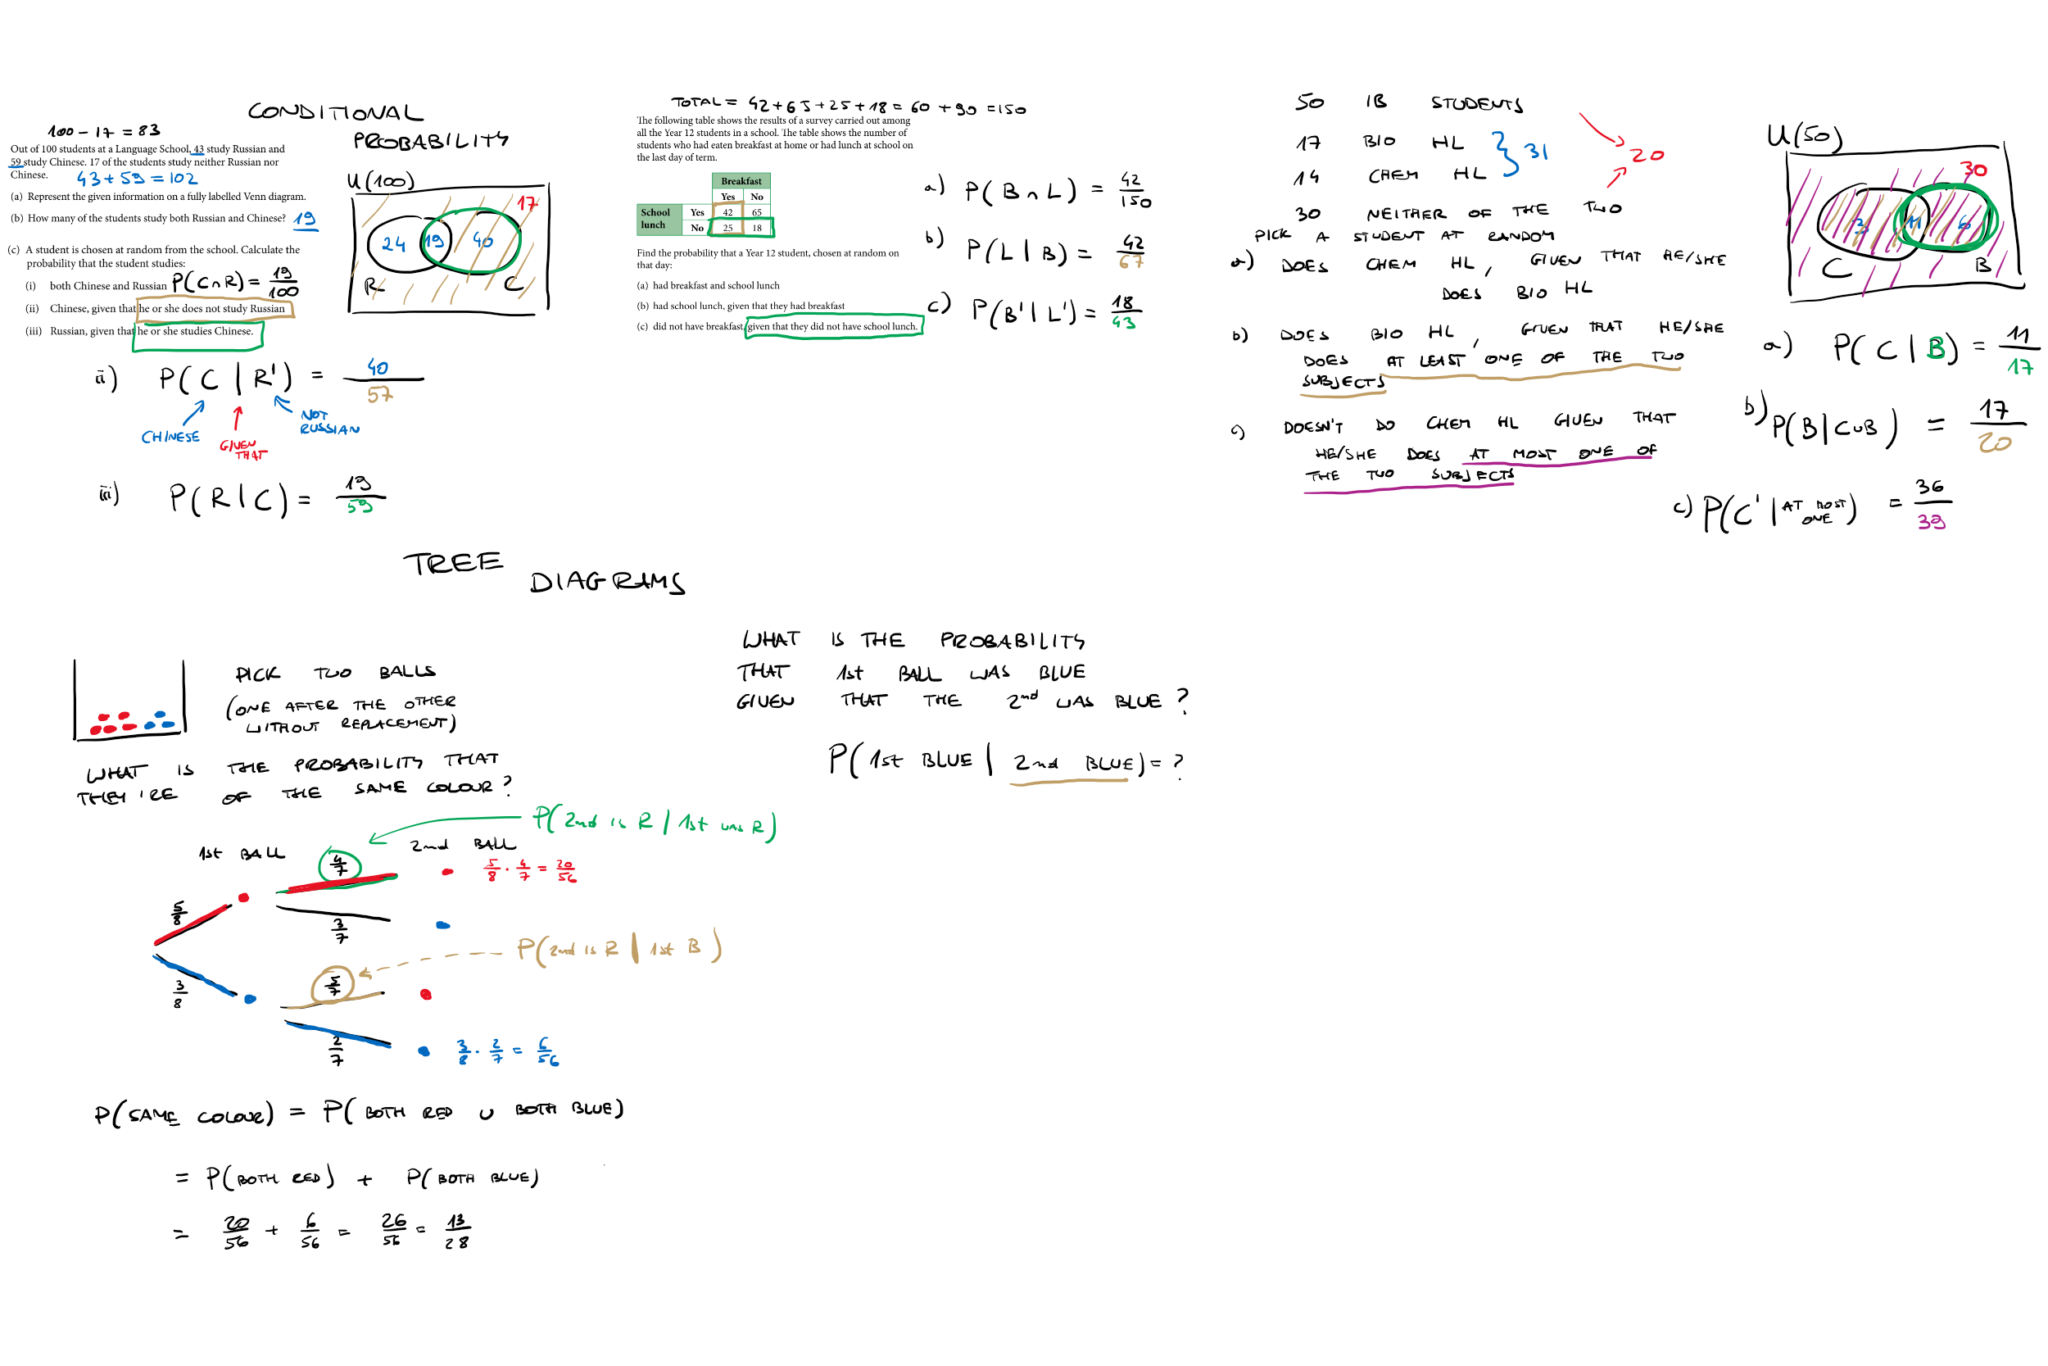 CONDITIONAL
PROBABILITY
100 - 17 = 83
Out of 100 students at a Language School, 43 study Russian and
59 study Chinese. 17 of the students study neither Russian nor
Chinese.
43 + 59 = 102
(a) Represent the given information on a fully labelled Venn diagram.
(b) How many of the students study both Russian and Chinese? 19
(c) A student is chosen at random from the school. Calculate the
probability that the student studies:
(i) both Chinese and Russian P(C∩R) = 19/100
(ii) Chinese, given that he or she does not study Russian
(iii) Russian, given that he or she studies Chinese.
U(100)
17
24 19 40
R C
ii) P(C | R') = 40/57
CHINESE
GIVEN THAT
NOT RUSSIAN
iii) P(R | C) = 19/59
TOTAL = 42 + 65 + 25 + 18 = 60 + 90 = 150
The following table shows the results of a survey carried out among
all the Year 12 students in a school. The table shows the number of
students who had eaten breakfast at home or had lunch at school on
the last day of term.
Breakfast
Yes No
School lunch
Yes 42 65
No 25 18
Find the probability that a Year 12 student, chosen at random on
that day:
(a) had breakfast and school lunch
(b) had school lunch, given that they had breakfast
(c) did not have breakfast, given that they did not have school lunch.
a) P(B∩L) = 42/150
b) P(L | B) = 42/67
c) P(B' | L') = 18/43
50 IB STUDENTS
17 BIO HL
14 CHEM HL
31
20
30 NEITHER OF THE TWO
PICK A STUDENT AT RANDOM
a) DOES CHEM HL, GIVEN THAT HE/SHE
DOES BIO HL
b) DOES BIO HL, GIVEN THAT HE/SHE
DOES AT LEAST ONE OF THE TWO
SUBJECTS
c) DOESN'T DO CHEM HL GIVEN THAT
HE/SHE DOES AT MOST ONE OF
THE TWO SUBJECTS
U(50)
30
3 11 6
C B
a) P(C | B) = 11/17
b) P(B | C∪B) = 17/20
c) P(C' | AT MOST ONE) = 36/39
TREE
DIAGRAMS
PICK TWO BALLS
(ONE AFTER THE OTHER
WITHOUT REPLACEMENT)
WHAT IS THE PROBABILITY THAT
THEY'RE OF THE SAME COLOUR?
P(2nd is R | 1st was R)
1st BALL
2nd BALL
5/8
4/7
5/8 · 4/7 = 20/56
3/7
P(2nd is R | 1st B)
3/8
5/7
2/7
3/8 · 2/7 = 6/56
P(SAME COLOUR) = P(BOTH RED ∪ BOTH BLUE)
= P(BOTH RED) + P(BOTH BLUE)
= 20/56 + 6/56 = 26/56 = 13/28
WHAT IS THE PROBABILITY
THAT 1st BALL WAS BLUE
GIVEN THAT THE 2nd WAS BLUE?
P(1st BLUE | 2nd BLUE) = ?